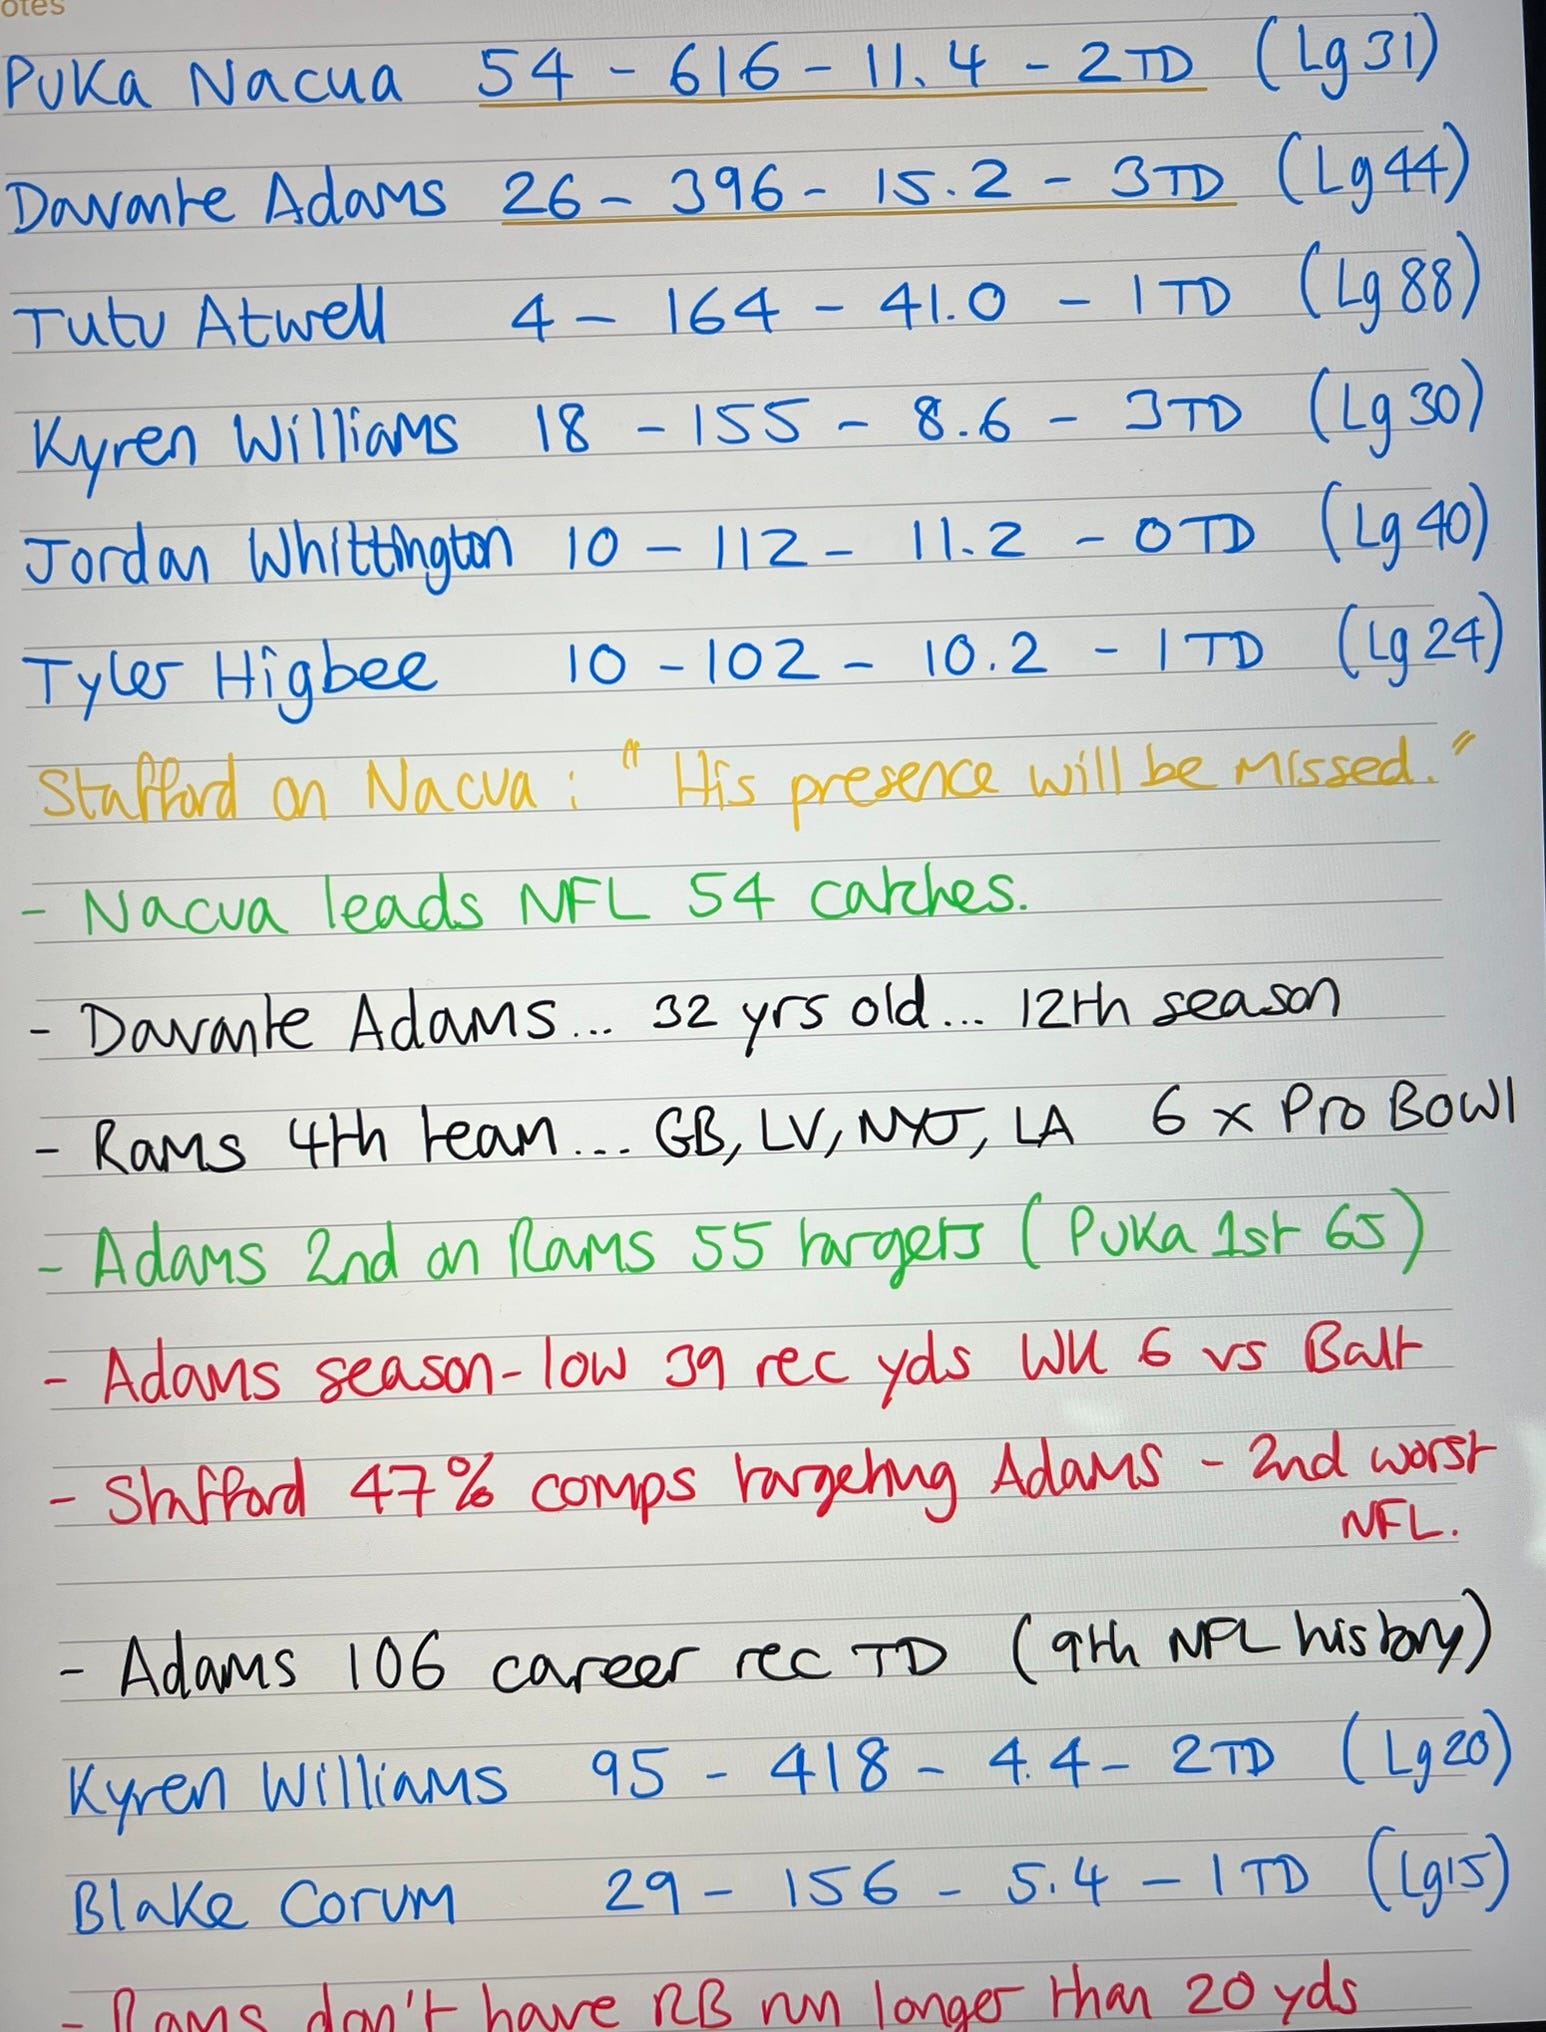 otes
Puka Nacua 54 - 616 - 11.4 - 2TD (Lg 31)
Davante Adams 26 - 396 - 15.2 - 3TD (Lg 44)
Tutu Atwell 4 - 164 - 41.0 - 1TD (Lg 88)
Kyren Williams 18 - 155 - 8.6 - 3TD (Lg 30)
Jordan Whittington 10 - 112 - 11.2 - 0TD (Lg 40)
Tyler Higbee 10 - 102 - 10.2 - 1TD (Lg 24)
Stafford on Nacua : "His presence will be missed."
- Nacua leads NFL 54 catches.
- Davante Adams... 32 yrs old... 12th season
- Rams 4th team... GB, LV, NYJ, LA 6 x Pro Bowl
- Adams 2nd on Rams 55 targets (Puka 1st 65)
- Adams season-low 39 rec yds Wk 6 vs Balt
- Stafford 47% comps targeting Adams - 2nd worst
NFL.
- Adams 106 career rec TD (9th NFL history)
Kyren Williams 95 - 418 - 4.4 - 2TD (Lg 20)
Blake Corum 29 - 156 - 5.4 - 1TD (Lg 15)
- Rams don't have RB run longer than 20 yds